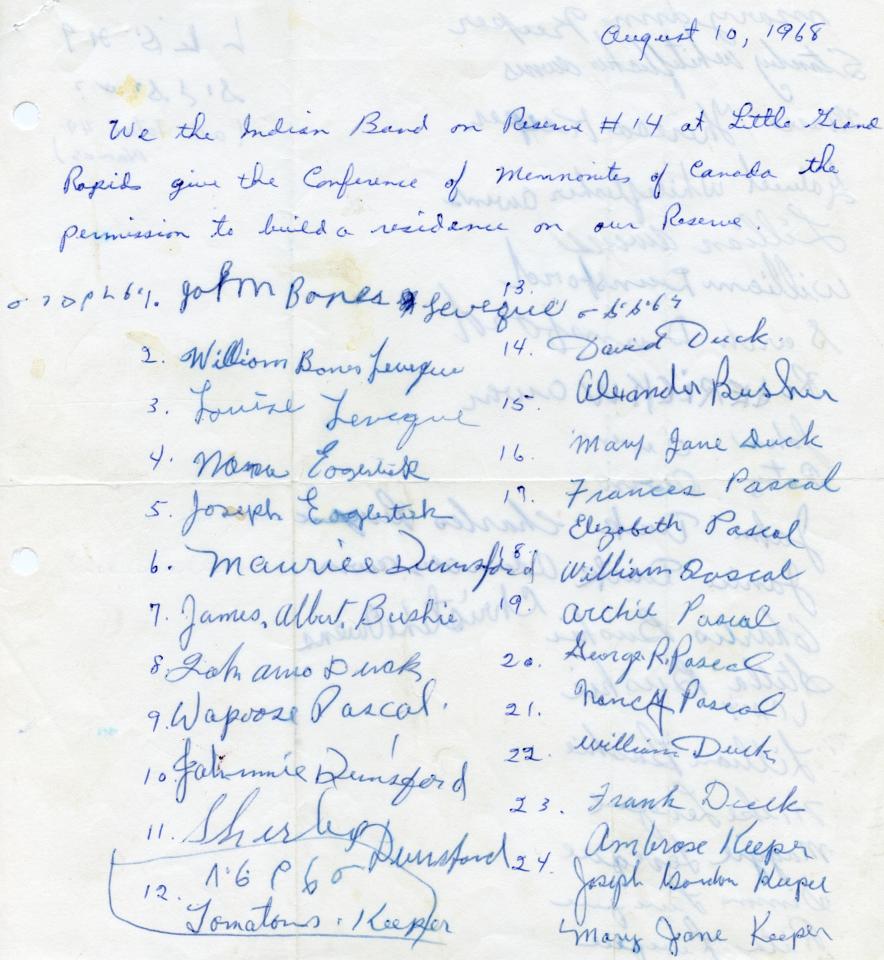 August 10, 1968
We the Indian Band on Reserve #14 at Little Grand
Rapids give the Conference of Mennonites of Canada the
permission to build a residence on our Reserve.
1. John Bones Leveque
2. William Bones Leveque
3. Louise Leveque
4. Eaglestick
5. Joseph Eaglestick
6. Maurice Dunsford
7. James, Albert, Bushie
8. Duck
9. Wapoose Pascal.
10. Johnnie Dunsford
11. Shirley Dunsford
12.
Keeper
13.
14. David Duck.
15. Alexander Bushie
16. Mary Jane Duck
17. Frances Pascal
Elizabeth Pascal
18. William Pascal
19. Archie Pascal
20. George R. Pascal
21. Nancy Pascal
22. William Duck
23. Frank Duck
24. Ambrose Keeper
Joseph Gordon Keeper
Mary Jane Keeper